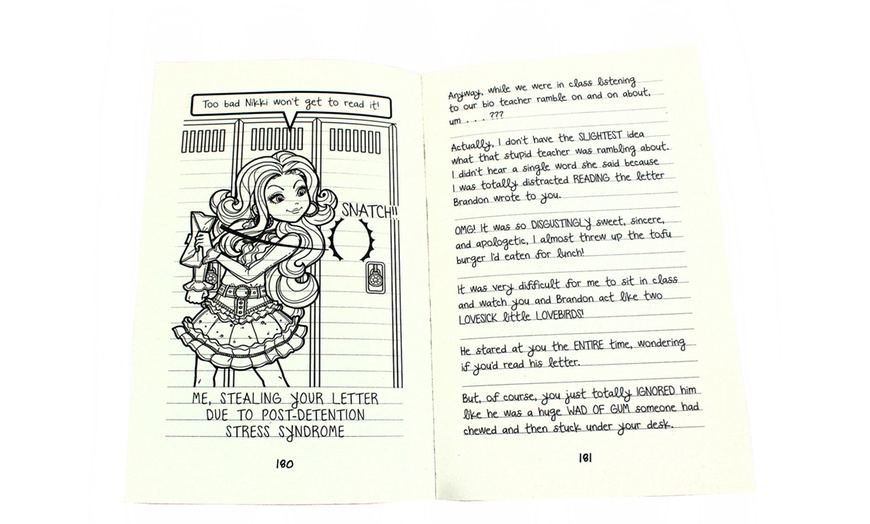 Too bad Nikki won't get to read it!
SNATCH!!
ME, STEALING YOUR LETTER
DUE TO POST-DETENTION
STRESS SYNDROME
180
Anyway, while we were in class listening
to our bio teacher ramble on and on about,
um . . . ???
Actually, I don't have the SLIGHTEST idea
what that stupid teacher was rambling about.
I didn't hear a single word she said because
I was totally distracted READING the letter
Brandon wrote to you.
OMG! It was so DISGUSTINGLY sweet, sincere,
and apologetic, I almost threw up the tofu
burger I'd eaten for lunch!
It was very difficult for me to sit in class
and watch you and Brandon act like two
LOVESICK little LOVEBIRDS!
He stared at you the ENTIRE time, wondering
if you'd read his letter.
But, of course, you just totally IGNORED him
like he was a huge WAD OF GUM someone had
chewed and then stuck under your desk.
181